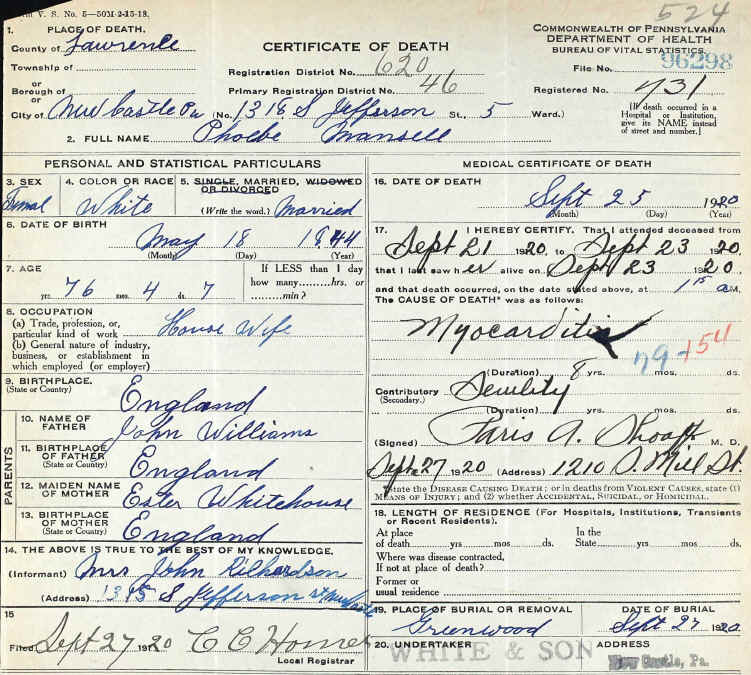 V. S. No. 5—50M-2-15-18.
524
1. PLACE OF DEATH.
County of Lawrence
Township of
or
Borough of
or
City of New Castle Pa (No. 1318 S Jefferson St., 5 Ward.)
CERTIFICATE OF DEATH
Registration District No. 620
Primary Registration District No. 46
COMMONWEALTH OF PENNSYLVANIA
DEPARTMENT OF HEALTH
BUREAU OF VITAL STATISTICS
File No. 96298
Registered No. 731
[If death occurred in a Hospital or Institution, give its NAME instead of street and number.]
2. FULL NAME Phoebe Mansell
PERSONAL AND STATISTICAL PARTICULARS
3. SEX
Femal
4. COLOR OR RACE
White
5. SINGLE, MARRIED, WIDOWED OR DIVORCED
(Write the word.) Married
6. DATE OF BIRTH
May 18 1844
(Month) (Day) (Year)
7. AGE
76 yrs. 4 mos. 7 ds.
If LESS than 1 day how many hrs. or min.?
8. OCCUPATION
(a) Trade, profession, or particular kind of work House Wife
(b) General nature of industry, business, or establishment in which employed (or employer)
9. BIRTHPLACE
(State or Country)
England
PARENTS
10. NAME OF FATHER
John Williams
11. BIRTHPLACE OF FATHER
(State or Country)
England
12. MAIDEN NAME OF MOTHER
Ester Whitehouse
13. BIRTHPLACE OF MOTHER
(State or Country)
England
14. THE ABOVE IS TRUE TO THE BEST OF MY KNOWLEDGE.
(Informant) Mrs John Richardson
(Address) 1315 S Jefferson St New Castle
15
Filed Sept 27 1920 C C Horner
Local Registrar
MEDICAL CERTIFICATE OF DEATH
16. DATE OF DEATH
Sept 25 1920
(Month) (Day) (Year)
17. I HEREBY CERTIFY, That I attended deceased from
Sept 21 1920 to Sept 23 1920,
that I last saw her alive on Sept 23 1920.
and that death occurred, on the date stated above, at 1 15 a M.
The CAUSE OF DEATH* was as follows:
Myocarditis
79 154
(Duration) 8 yrs. mos. ds.
Contributory Senility
(Secondary.)
(Duration) yrs. mos. ds.
(Signed) Paris A. Shoaff M. D.
Sept 27 1920 (Address) 1210 S. Mill St.
*State the DISEASE CAUSING DEATH; or in deaths from VIOLENT CAUSES, state (1) MEANS OF INJURY; and (2) whether ACCIDENTAL, SUICIDAL, or HOMICIDAL.
18. LENGTH OF RESIDENCE (For Hospitals, Institutions, Transients or Recent Residents).
At place of death yrs mos ds. In the State yrs. mos. ds.
Where was disease contracted, If not at place of death?
Former or usual residence
19. PLACE OF BURIAL OR REMOVAL
Greenwood
DATE OF BURIAL
Sept 27 1920
20. UNDERTAKER
WHITE & SON
ADDRESS
New Castle, Pa.